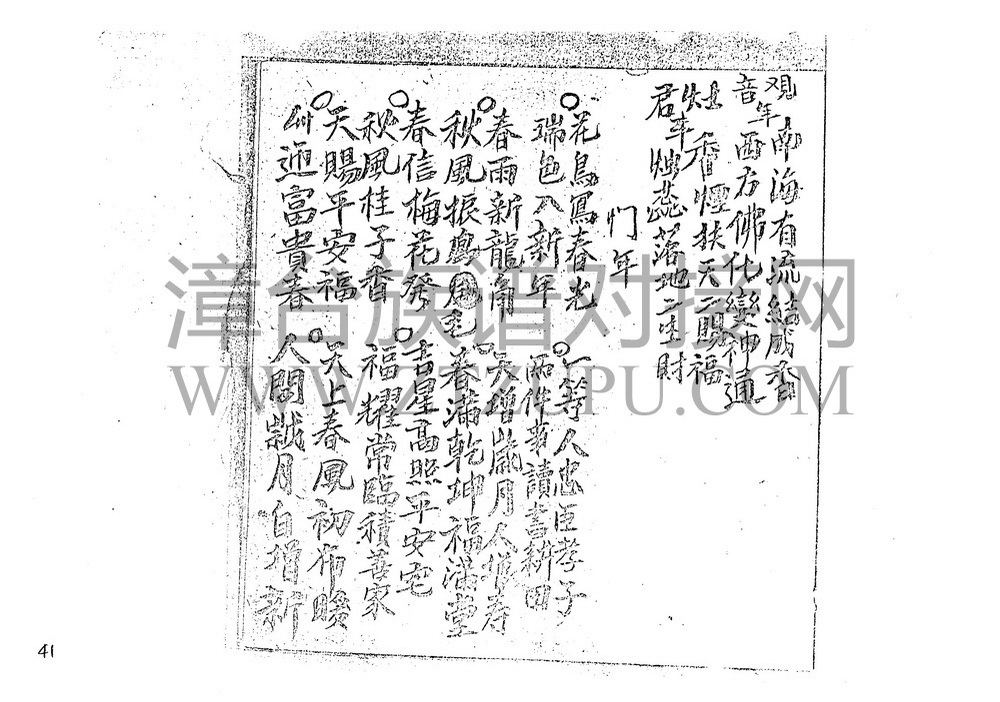 観音年
南海有流結成香
西方佛化變神通
灶君年
香煙扶天二賜福
燭蕊落地二生財
门年
花鳥鳳春光
瑞色入新年
春雨新龍角
秋風振鳥毛
春信梅花發
秋風桂子香
天賜平安福
通富貴春
一等人忠臣孝子
兩件事讀書耕田
天增歲月人增寿
春滿乾坤福滿堂
吉星高照平安宅
福耀常臨積善家
天上春風初布暖
人間歲月自增新
漳台族谱对接网
WWW.ZTZUPU.COM
41